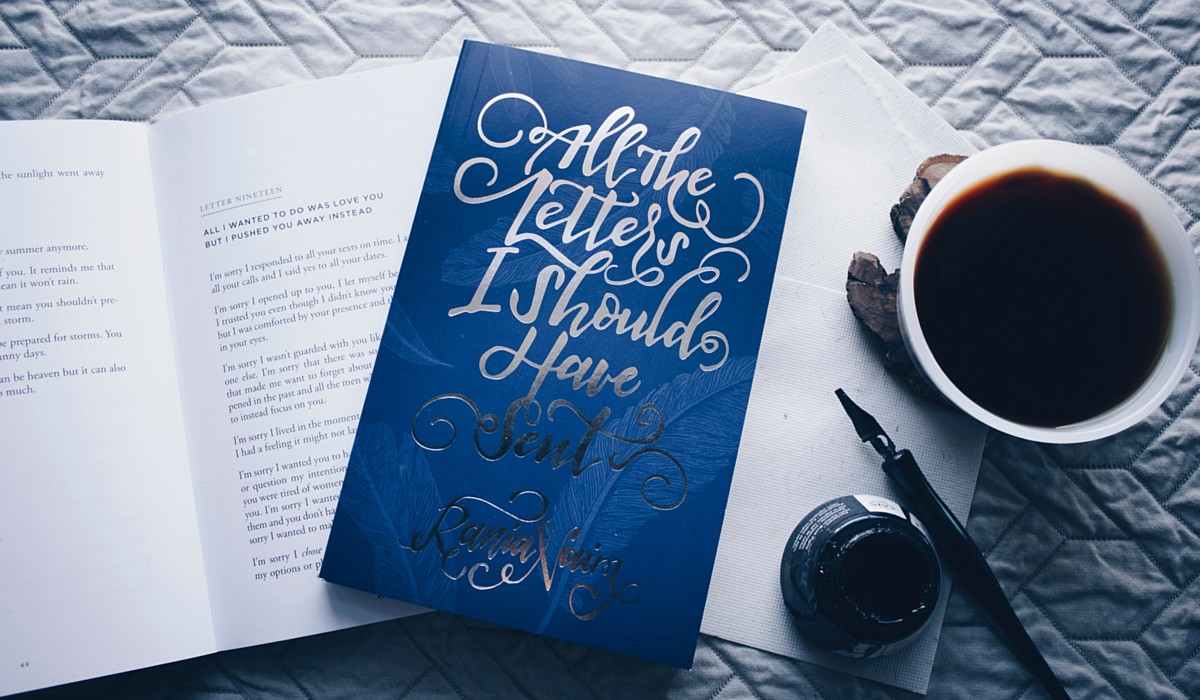 the sunlight went away
summer anymore.
f you. It reminds me that
ean it won't rain.
t mean you shouldn't pre-
storm.
e prepared for storms. You
nny days.
an be heaven but it can also
o much.
44
LETTER NINETEEN
ALL I WANTED TO DO WAS LOVE YOU
BUT I PUSHED YOU AWAY INSTEAD
I'm sorry I responded to all your texts on time. I a
all your calls and I said yes to all your dates.
I'm sorry I opened up to you, I let myself be
I trusted you even though I didn't know you
but I was comforted by your presence and th
in your eyes.
I'm sorry I wasn't guarded with you lik
one else. I'm sorry that there was so
that made me want to forget about
pened in the past and all the men w
to instead focus on you.
I'm sorry I lived in the moment
I had a feeling it might not las
I'm sorry I wanted you to h
or question my intention
you were tired of women
you. I'm sorry I wante
them and you don't ha
sorry I wanted to ma
I'm sorry I chose
my options or p
All the
Letters
I Should
Have
Sent
Rania Naim